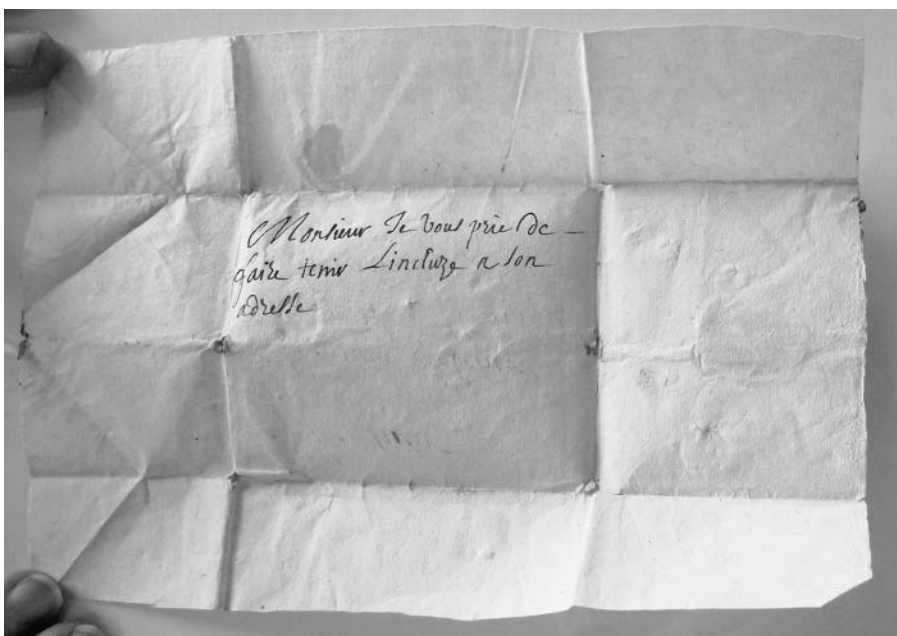 Monsieur Je vous prie de
faire tenir Lincluze a son
adresse